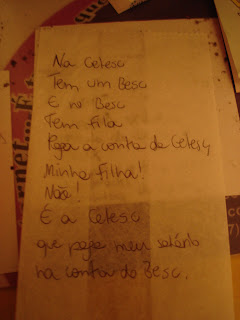 Na Celesc
Tem um Besc
E no Besc
Tem fila
Pagar a conta da Celesc,
Minha Filha!
Não!
É a Celesc
que paga meu salário
na conta do Besc.